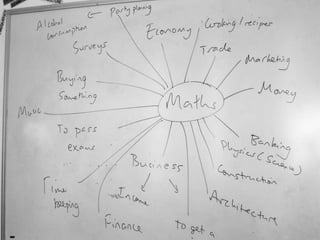 Alcohol
consumption
Party planning
Surveys
Economy
Cooking / recipes
Trade
Marketing
Buying
Something
Maths
Money
Music
To pass
exams
Banking
Physics (Science)
Business
Construction
Time
keeping
Income
Architecture
Finance
To get a